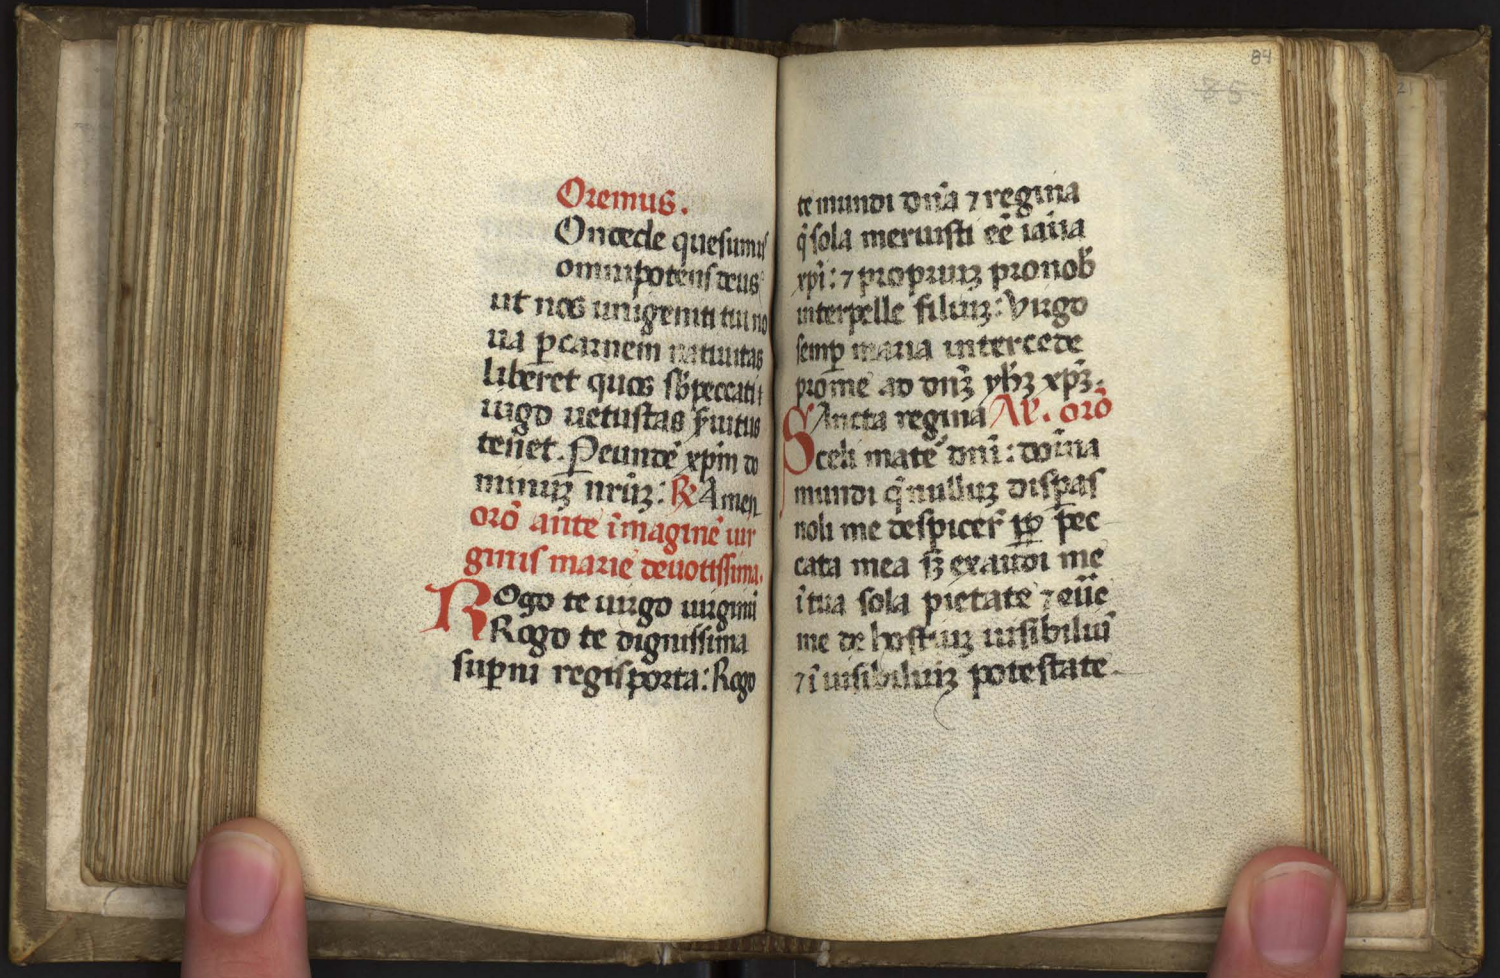 Oremus.
Oncede quesumus
omnipotens deus
ut nos unigeniti tui no
ua ꝑ carnem natiuitas
liberet quos sb̄ peccati
iugo uetustas ẜuitus
tenēt. Peundē xp̄m do
minuꝫ nr̄uꝫ: ℟ Amen
orō ante īmaginē uir
ginis marie deuotissima.
ROgo te uirgo uirginū
Rogo te dignissima
suꝑni regis porta: Rogo
84
85
te mundi dn̄a ⁊ regina
q̄ sola meruisti eē ianua
xp̄i: ⁊ propriuꝫ pro nob̄
interpelle filiuꝫ: Virgo
semꝑ maria intercede
pro me ad dn̄ꝫ yh̄ꝫ xp̄ꝫ.
Sancta regina Al'. orō
celi mater dn̄i: doīna
mundi q̄ nulluꝫ dispas
noli me despicer̄ ꝓpť pec
cata mea sꝫ exaudi me
ī tua sola pietate ⁊ erue
me de hostiuꝫ uisibiliū
⁊ ī uisibiliuꝫ potestate